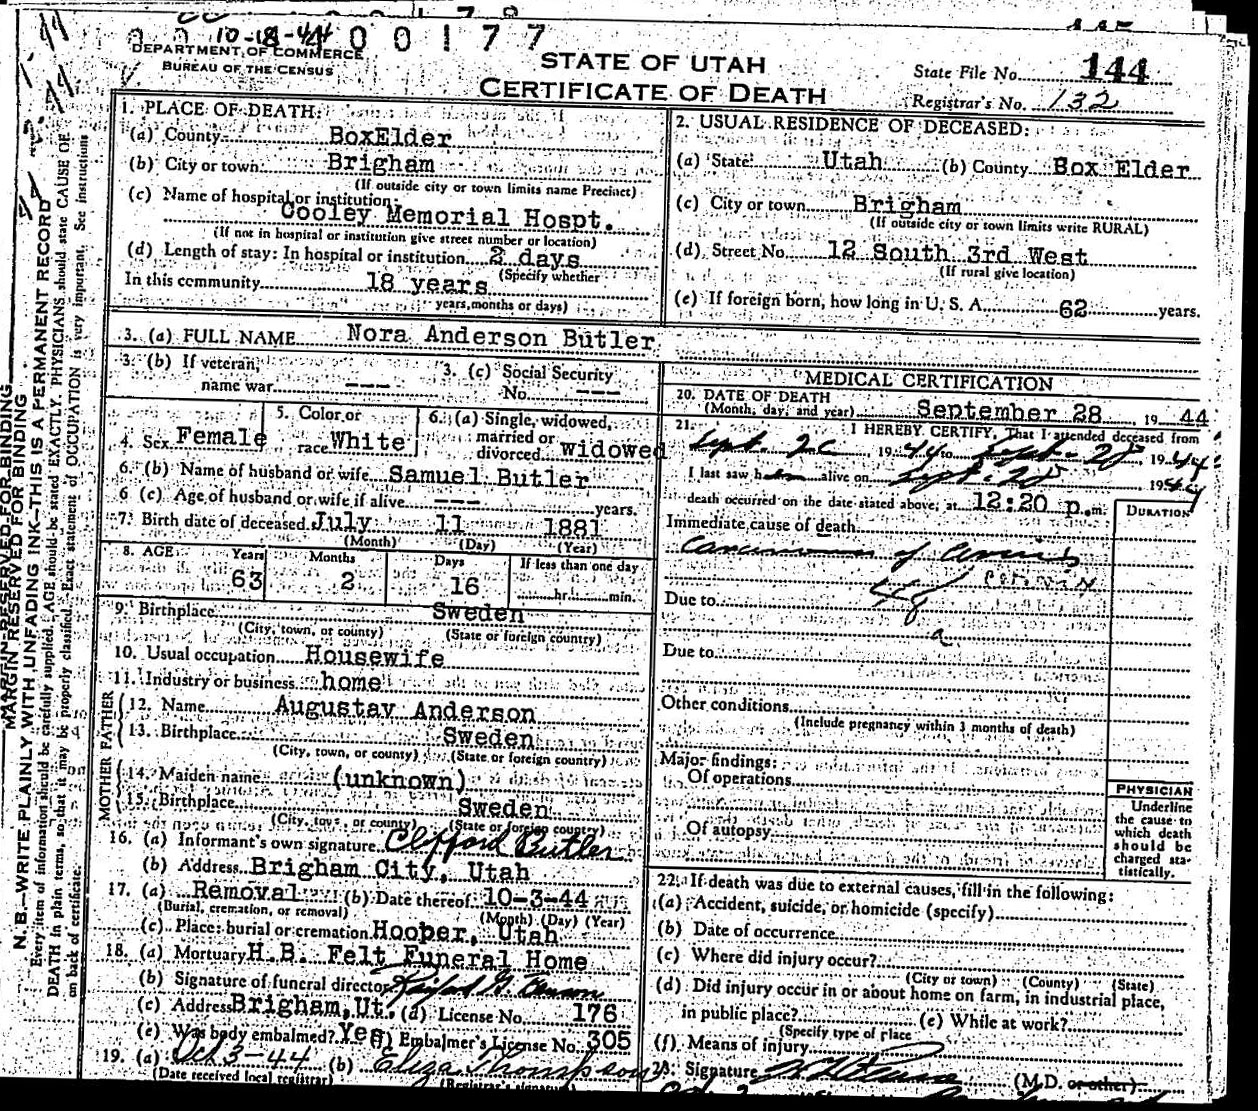 10-18-44 00177
DEPARTMENT OF COMMERCE
BUREAU OF THE CENSUS
STATE OF UTAH
CERTIFICATE OF DEATH
State File No. 144
Registrar's No. 132
1. PLACE OF DEATH:
(a) County BoxElder
(b) City or town Brigham
(If outside city or town limits name Precinct)
(c) Name of hospital or institution:
Cooley Memorial Hospt.
(If not in hospital or institution give street number or location)
(d) Length of stay: In hospital or institution 2 days
(Specify whether
In this community 18 years
years, months or days)
2. USUAL RESIDENCE OF DECEASED:
(a) State Utah (b) County Box Elder
(c) City or town Brigham
(If outside city or town limits write RURAL)
(d) Street No. 12 South 3rd West
(If rural give location)
(e) If foreign born, how long in U. S. A. 62 years.
3. (a) FULL NAME Nora Anderson Butler
3. (b) If veteran, name war ---
3. (c) Social Security No. ---
4. Sex Female
5. Color or race White
6. (a) Single, widowed, married or divorced Widowed
6. (b) Name of husband or wife Samuel Butler
6 (c) Age of husband or wife if alive --- years.
7. Birth date of deceased July 11 1881
(Month) (Day) (Year)
8. AGE Years Months Days If less than one day
63 2 16 hr. min.
9. Birthplace Sweden
(City, town, or county) (State or foreign country)
10. Usual occupation Housewife
11. Industry or business home
FATHER
12. Name Augustav Anderson
13. Birthplace Sweden
(City, town, or county) (State or foreign country)
MOTHER
14. Maiden name (unknown)
15. Birthplace Sweden
(City, town, or county) (State or foreign country)
16. (a) Informant's own signature Clifford Butler
(b) Address Brigham City, Utah
17. (a) Removal (b) Date thereof 10-3-44
(Burial, cremation, or removal) (Month) (Day) (Year)
(c) Place: burial or cremation Hooper, Utah
18. (a) Mortuary H.B. Felt Funeral Home
(b) Signature of funeral director
(c) Address Brigham, Ut. (d) License No. 176
(e) Was body embalmed? Yes (f) Embalmer's License No. 305
19. (a) Oct 3-44 (b) Eliza Thompson
(Date received local registrar) (Registrar's signature)
MEDICAL CERTIFICATION
20. DATE OF DEATH
(Month, day, and year) September 28, 1944
21. I HEREBY CERTIFY, That I attended deceased from
Sept. 1944 to Sept-28, 1944
I last saw h alive on Sept-28, 1944
death occurred on the date stated above, at 12:20 p.m.
DURATION
Immediate cause of death
of
Cervix
Due to
48
a
Due to
Other conditions
(Include pregnancy within 3 months of death)
Major findings:
Of operations
Of autopsy
PHYSICIAN
Underline
the cause to
which death
should be
charged sta-
tistically.
22. If death was due to external causes, fill in the following:
(a) Accident, suicide, or homicide (specify)
(b) Date of occurrence
(c) Where did injury occur?
(City or town) (County) (State)
(d) Did injury occur in or about home on farm, in industrial place,
in public place? (e) While at work?
(Specify type of place
(f) Means of injury
23. Signature (M.D. or other)
MARGIN RESERVED FOR BINDING
N. B.—WRITE PLAINLY WITH UNFADING INK—THIS IS A PERMANENT RECORD
Every item of information should be carefully supplied. AGE should be stated EXACTLY. PHYSICIANS should state CAUSE OF
DEATH in plain terms, so that it may be properly classified. Exact statement of OCCUPATION is very important. See instructions
on back of certificate.